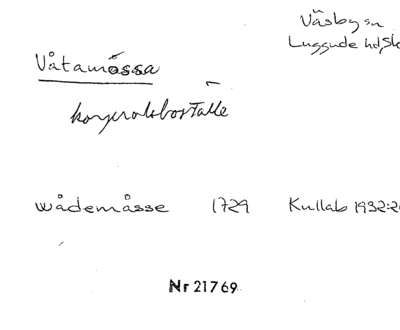 Väsby sn
Luggude hd, Sk
Våtamossa
korpralsboställe
wådemåsse 1729 Kullab 1932:2
Nr 21769